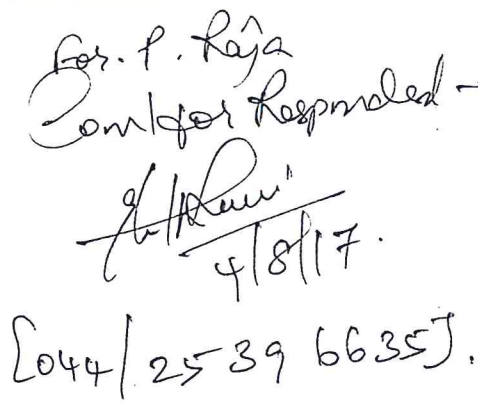 For. P. Raja
Coun/for Respondent -
4/8/17.
[044/25 39 6635].